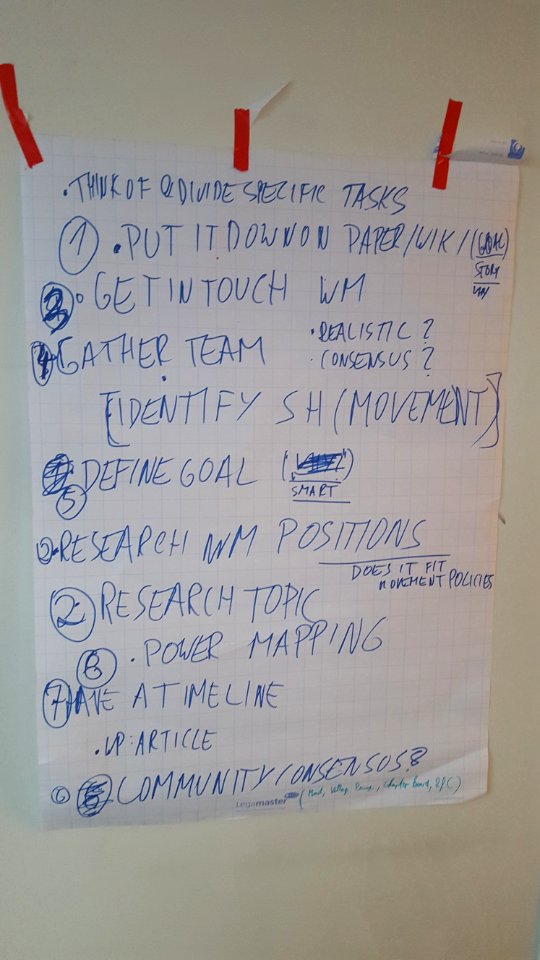 • THINK OF & DIVIDE SPECIFIC TASKS
① • PUT IT DOWN ON PAPER/WIKI (GOAL)
STORY
3 • GET IN TOUCH WM
4 GATHER TEAM
• REALISTIC ?
• CONSENSUS ?
[IDENTIFY SH (MOVEMENT)]
⑤ DEFINE GOAL
SMART
RESEARCH WM POSITIONS
DOES IT FIT
MOVEMENT POLICIES
② RESEARCH TOPIC
⑧ • POWER MAPPING
⑦ HAVE A TIMELINE
• WP: ARTICLE
⑥ COMMUNITY CONSENSUS
Legamaster
(Mail, Village Pump, Chapter board, RFC)